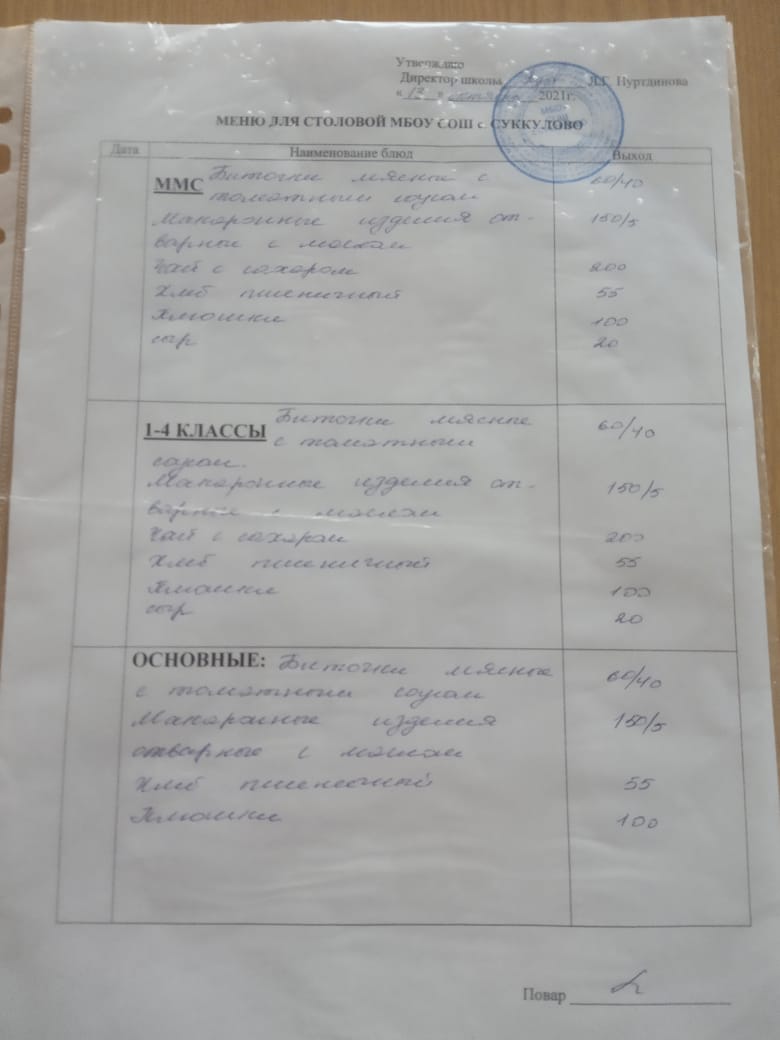 Утверждаю
Директор школы Л.Г. Нуртдинова
« 13 » сентября 2021г.
МЕНЮ ДЛЯ СТОЛОВОЙ МБОУ СОШ с. СУККУЛОВО
Дата Наименование блюд Выход
ММС Биточки мясные с 60/40
томатным соусом
Макаронные изделия от- 150/5
варные с маслом
Чай с сахаром 200
Хлеб пшеничный 55
100
сыр 20
1-4 КЛАССЫ Биточки мясные 60/40
с томатным
соусом.
Макаронные изделия от- 150/5
варные с маслом
Чай с сахаром 200
Хлеб пшеничный 55
100
сыр 20
ОСНОВНЫЕ: Биточки мясные 60/40
с томатным соусом
Макаронные изделия 150/5
отварные с маслом
Хлеб пшеничный 55
100
Повар